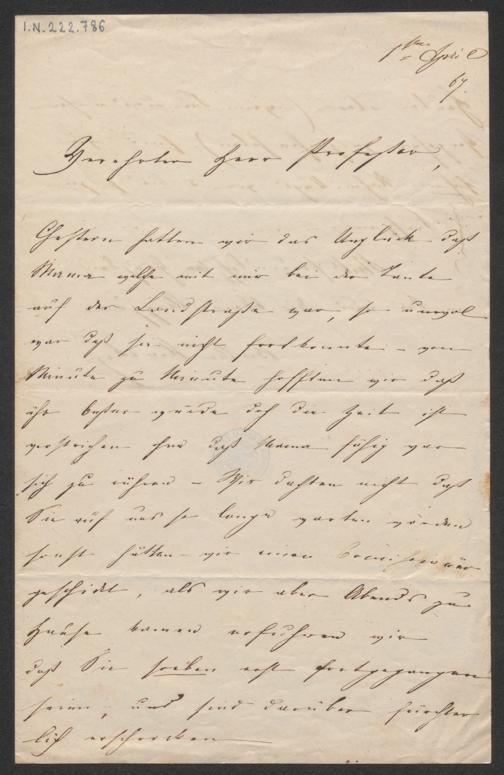 I.N. 222.786
1ten April
67.
Verehrter Herr Professor,
Gestern hatten wir das Unglück daß
Mama welche mit mir bei der Tante
auf der Landstraße war, so unwol
war daß sie nicht fortkonnte – von
Minute zu Minute hofften wir daß
ihr besser würde doch die Zeit ist
verstrichen ehe daß Mama fähig war
sich zu rühren – Wir dachten nicht daß
Sie auf uns so lange warten würden
sonst hätten wir einen Comissionär
geschickt, als wir aber Abends zu
Hause kamen erfuhren wir
daß Sie soeben erst fortgegangen
seien, und sind darüber fürchter
lich erschrocken